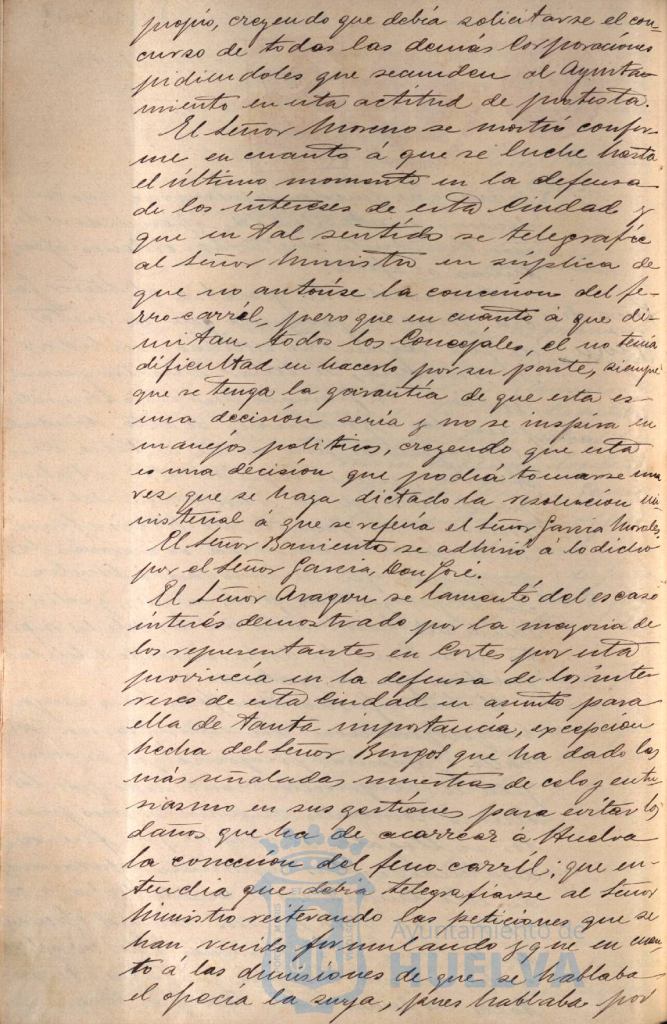 propio, creyendo que debía solicitarse el con-
curso de todas las demás Corporaciones
pidiendoles que secunden al Ayunta-
miento en esta actitud de protesta.
El Señor Moreno se mostró confor-
me en cuanto á que se luche hasta
el último momento en la defensa
de los intereses de esta Ciudad y
que en tal sentido se telegrafíe
al Señor Ministro en súplica de
que no autorise la concesion del fe-
rro-carril, pero que en cuanto á que di-
mitan todos los Concejales, el no tenia
dificultad en hacerlo por su parte, siempre
que se tenga la garantía de que esta es
una decisión seria y no se inspira en
manejos politicos, creyendo que esta
es una decision que podrá tomarse una
vez que se haya dictado la resolucion mi-
nisterial á que se referia el Señor Garcia Morales.
El Señor Barriento se adhirió á lo dicho
por el Señor Garcia, Don José.
El Señor Aragon se lamentó del escaso
interés demostrado por la mayoria de
los representantes en Cortes por esta
provincia en la defensa de los inte-
reses de esta Ciudad en asunto para
ella de tanta importancia, excepcion
hecha del Señor Burgos que ha dado las
más señaladas muestras de celo y entu-
siasmo en sus gestiones para evitar los
daños que ha de acarrear á Huelva
la concesion del ferro-carril; que en-
tendia que debra telegrafiarse al Señor
Ministro reiterando las peticiones que se
han venido formulando y que en cuan-
to á las dimisiones de que se hablaba
el ofrecía la suya, pues hablaba por
Ayuntamiento de
HUELVA